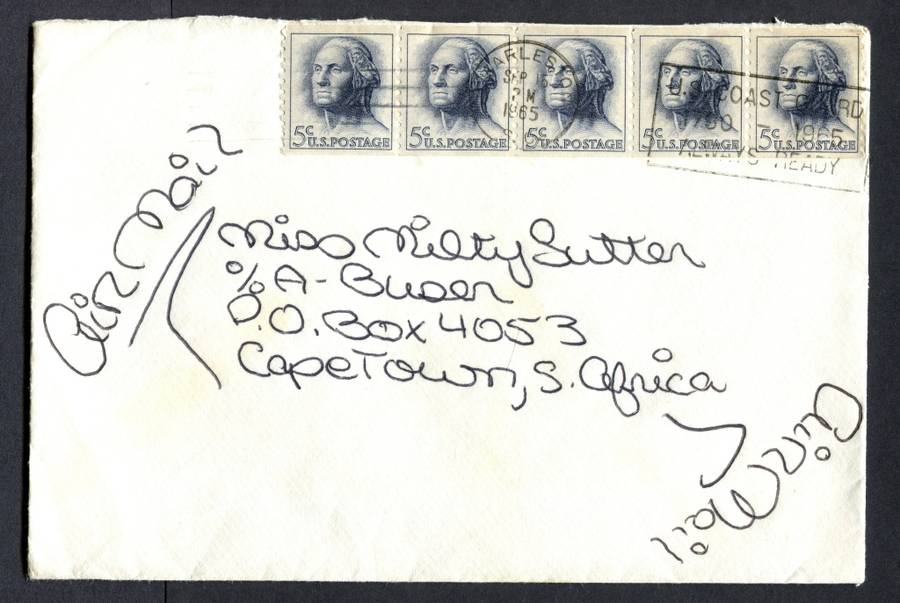 5¢ U.S. POSTAGE 5¢ U.S. POSTAGE 5¢ U.S. POSTAGE 5¢ U.S. POSTAGE 5¢ U.S. POSTAGE
SEP
PM
1965
U.S. COAST GUARD
1790 – 1965
ALWAYS READY
Air Mail
Miss Milty Sutter
c/o A - Buser
P.O. Box 4053
CapeTown, S. Africa
Air Mail